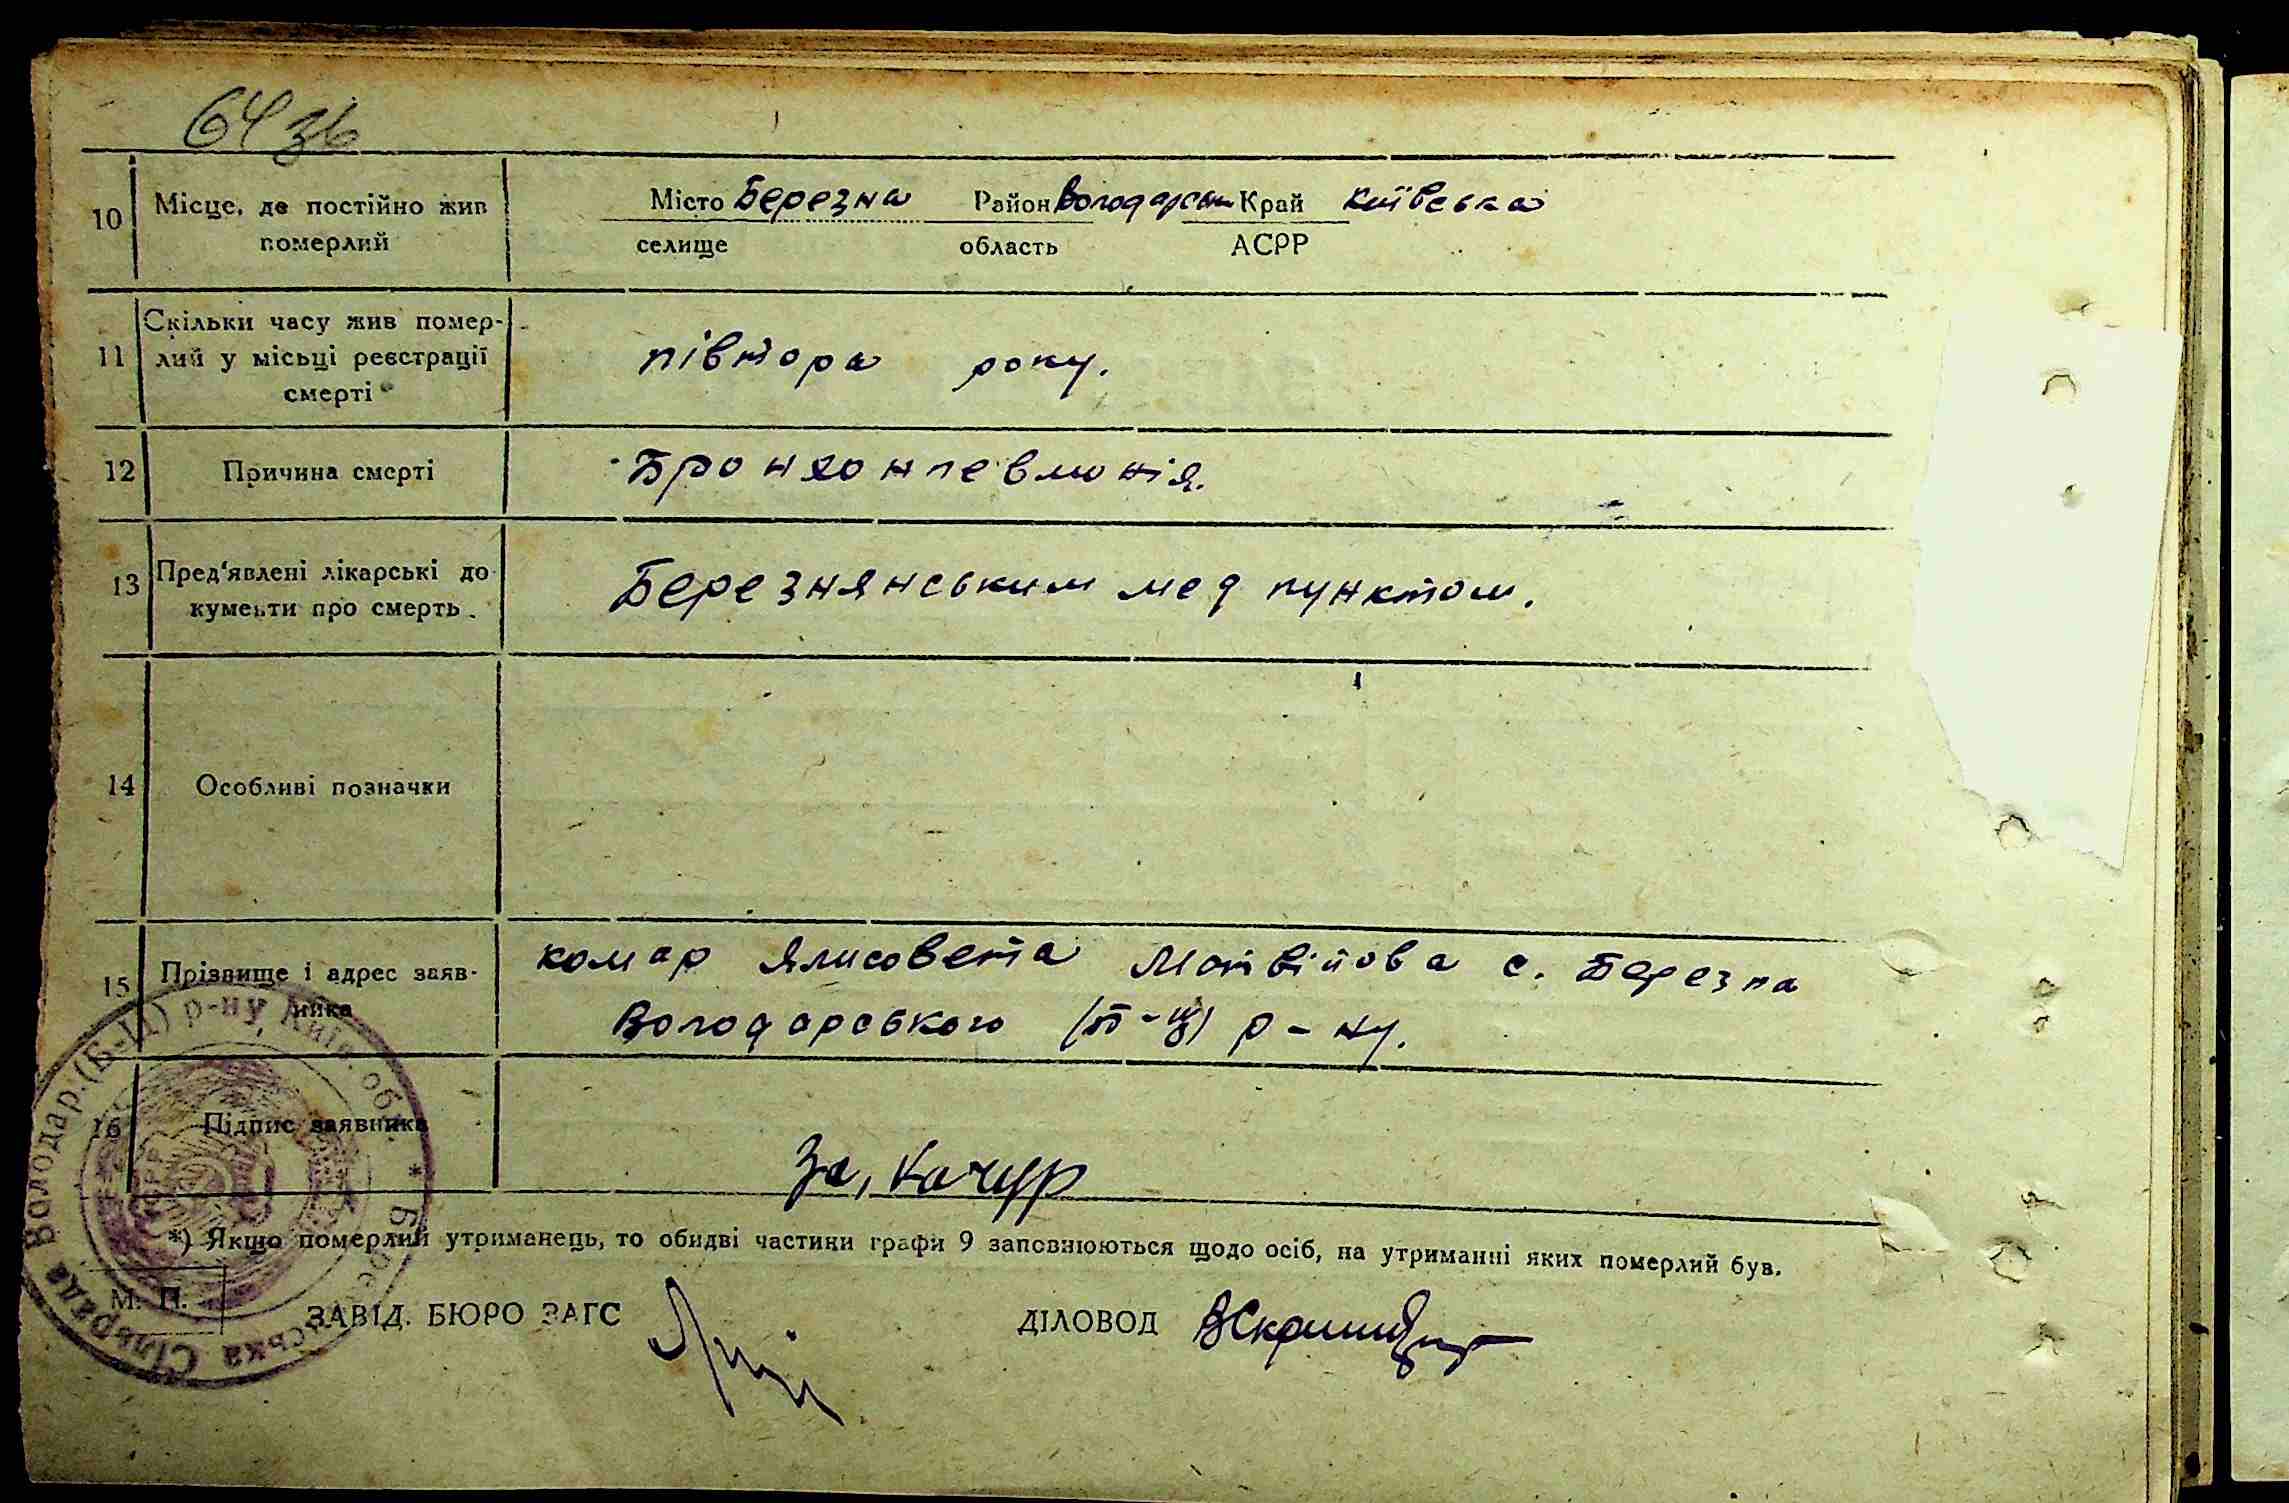 64 зв
10 Місце, де постійно жив померлий
Місто Березна Район Володарськ Край Київська
селище область АСРР
11 Скільки часу жив помер-
лий у місьці реєстрації
смерті
півтора року.
12 Причина смерті
Бронхонпевмонія.
13 Пред'явлені лікарські до
кументи про смерть.
Березнянським мед пунктом.
14 Особливі позначки
15 Прізвище і адрес заяв-
ника
комар Ялисовета Матвійова с. Березна
Володарського (Б-Ц) р-ну.
16 Підпис заявника
За, Качур
*) Якщо померлий утриманець, то обидві частини графи 9 заповнюються щодо осіб, на утриманні яких померлий був.
М. П.
ЗАВІД. БЮРО ЗАГС
ДІЛОВОД
Володар.(Б-Ц) р-ну, Київ. обл. *
Сільрада